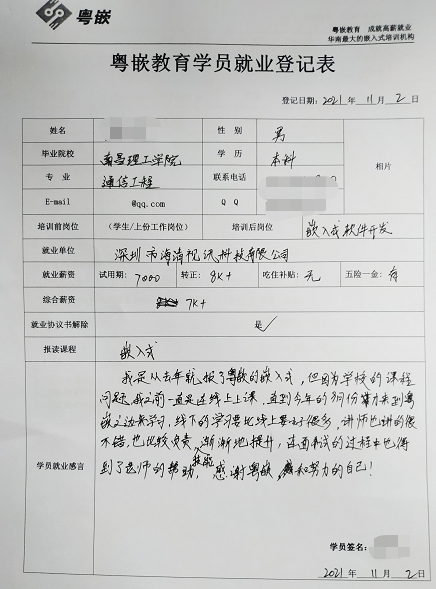 粤嵌
粤嵌教育 成就高薪就业
华南最大的嵌入式培训机构
粤嵌教育学员就业登记表
登记日期：2021 年 11 月 2 日
姓名 性别 男
毕业院校 南昌理工学院 学历 本科 相片
专业 通信工程 联系电话
E-mail @qq.com Q Q
培训前岗位 （学生/上份工作岗位） 培训后岗位 嵌入式软件开发
就业单位 深圳市海清视讯科技有限公司
就业薪资 试用期：7000 转正：8K+ 吃住补贴：无 五险一金：有
综合薪资 7K+
就业协议书解除 是✓
报读课程 嵌入式
学员就业感言
我是从去年就报了粤嵌的嵌入式，但因为学校的课程
问题，我之前一直是在线上上课，直到今年的8月份才来到粤
嵌这边来学习，线下的学习要比线上要好很多，讲师也讲的很
不错，也比较负责，技能渐渐地提升，在面试的过程中也得
到了老师的帮助，感谢粤嵌，和努力的自己！
学员签名：
2021 年 11 月 2 日